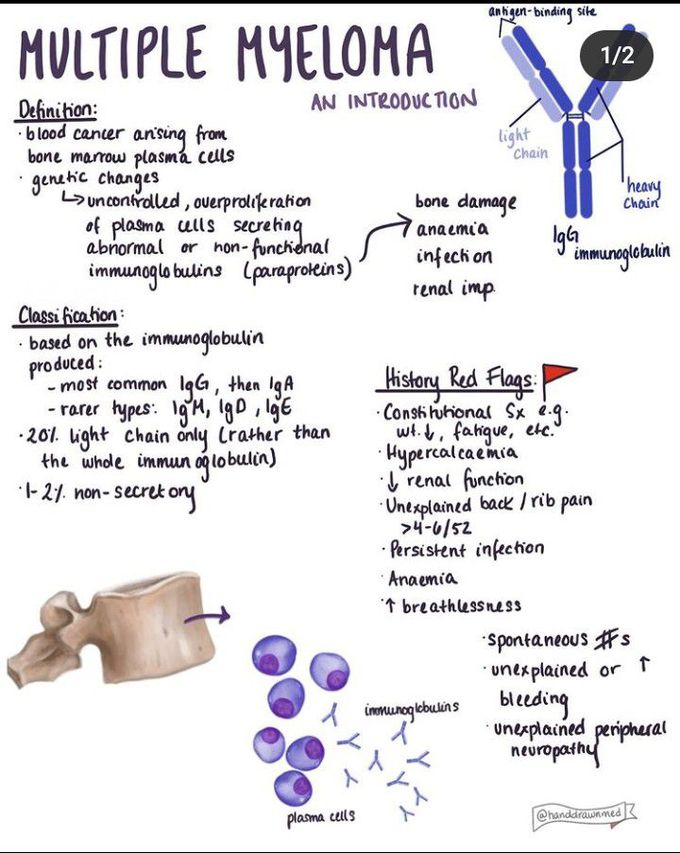 MULTIPLE MYELOMA
AN INTRODUCTION
antigen-binding site
1/2
light
chain
heavy
chain
IgG
immunoglobulin
Definition:
· blood cancer arising from
bone marrow plasma cells
· genetic changes
↳ uncontrolled, overproliferation
of plasma cells secreting
abnormal or non-functional
immunoglobulins (paraproteins)
bone damage
anaemia
infection
renal imp.
Classification:
· based on the immunoglobulin
produced:
- most common IgG, then IgA
- rarer types: IgM, IgD, IgE
· 20% light chain only (rather than
the whole immunoglobulin)
· 1-2% non-secretory
History Red Flags:
· Constitutional Sx e.g.
wt.↓, fatigue, etc.
· Hypercalcaemia
· ↓ renal function
· Unexplained back / rib pain
>4-6/52
· Persistent infection
· Anaemia
· ↑ breathlessness
· spontaneous #s
· unexplained or ↑
bleeding
· unexplained peripheral
neuropathy
immunoglobulins
plasma cells
@handdrawnmed